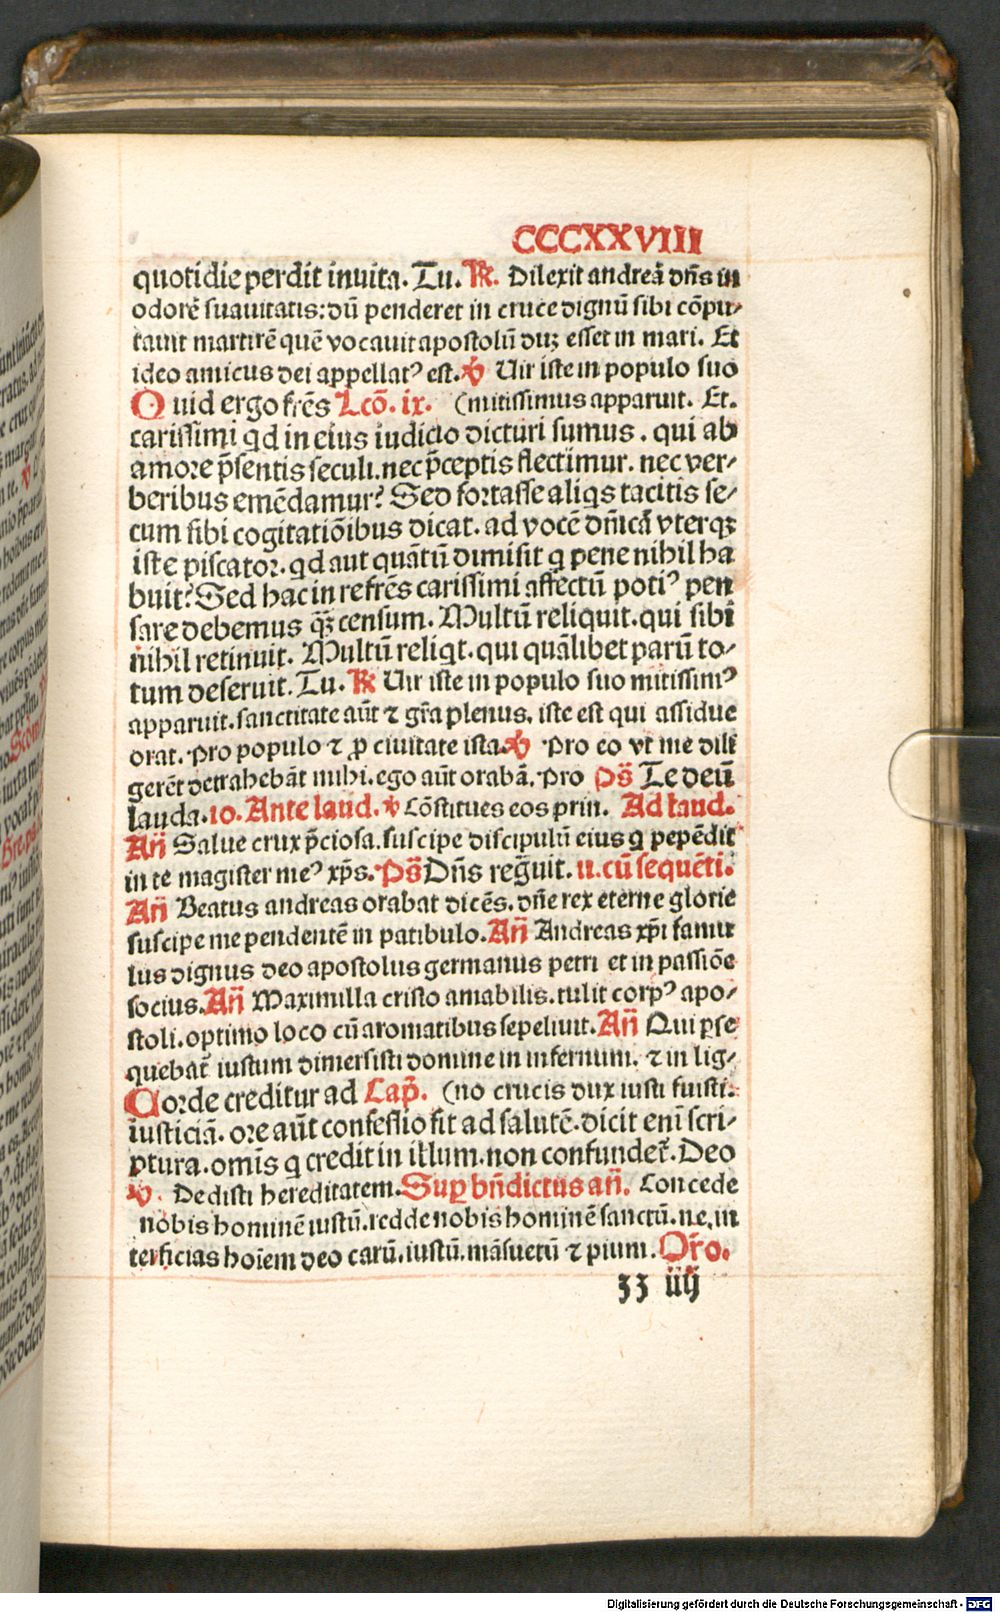 CCCXXVIIII
quotidie perdit inuita. Tu. R̃. Dilexit andreã dñs in
odorẽ suauitatis: dũ penderet in cruce dignũ sibi cõpu-
tauit martirẽ quẽ vocauit apostolũ duȝ esset in mari. Et
ideo amicus dei appellatꝰ est. ℣ Uir iste in populo suo
Quid ergo frẽs Lcõ. ix. (mitissimus apparuit. Et.
carissimi qd in eius iudicio dicturi sumus. qui ab
amore p̃sentis seculi. nec p̃ceptis flectimur. nec ver-
beribus emẽdamur? Sed fortasse aliqs tacitis se-
cum sibi cogitatiõibus dicat. ad vocẽ dñicã vterqȝ
iste piscator. qd aut quãtũ dimisit q pene nihil ha
buit? Sed hac in re frẽs carissimi affectũ potiꝰ pen
sare debemus qȝ̃ censum. Multũ reliquit. qui sibi
nihil retinuit. Multũ reliqt. qui quãlibet parũ to-
tum deseruit. Tu. R̃ Uir iste in populo suo mitissimꝰ
apparuit. sanctitate aũt ⁊ gr̃a plenus. iste est qui assidue
orat. pro populo ⁊ ꝓ ciuitate ista. ℣ Pro eo vt me dili
gerẽt detrahebãt mihi. ego aũt orabã. Pro ps̃ Te deũ
lauda. 10. Ante laud. ℣ Cõstitues eos prin. Ad laud.
Añ Salue crux p̃ciosa. suscipe discipulũ eius q pepẽdit
in te magister meꝰ xp̃s. Ps̃ Dñs regũit. 11. cũ sequẽti.
Añ Beatus andreas orabat dicẽs. dñe rex eterne glorie
suscipe me pendentẽ in patibulo. Añ Andreas xp̃i famu
lus dignus deo apostolus germanus petri et in passiõe
socius. Añ Maximilla cristo amabilis. tulit corpꝰ apo-
stoli. optimo loco cũ aromatibus sepeliuit. Añ Qui ꝑse
quebat̃ iustum dimersisti domine in infernum. ⁊ in lig-
Corde creditur ad Cap̃. (no crucis dux iusti fuisti.
iusticiã. ore aũt confessio fit ad salutẽ. dicit enĩ scri-
ptura. omĩs q credit in illum. non confundet̃. Deo
℣. Dedisti hereditatem. Suꝑ bñdictus añ. Concede
nobis hominẽ iustũ. redde nobis hominẽ sanctũ. ne in
terficias hoĩem deo carũ. iustũ. mãsuetũ ⁊ pium. Or̃o.
ȝȝ iiij
Digitalisierung gefördert durch die Deutsche Forschungsgemeinschaft - DFG